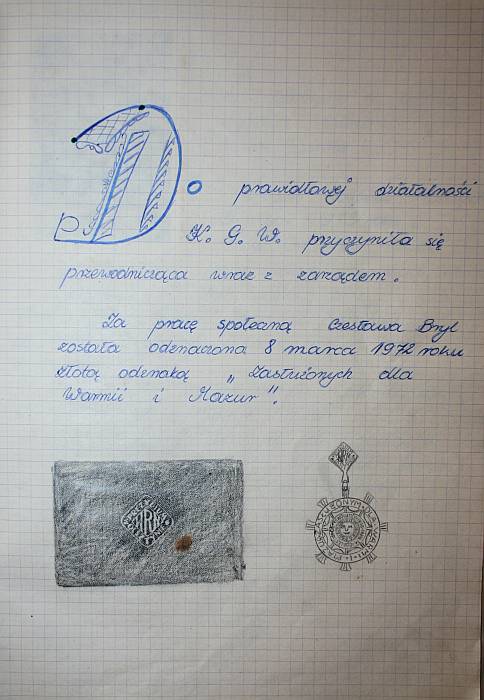 Do prawidłowej działalności
K. G. W. przyczyniła się
przewodnicząca wraz z zarządem.
Za pracę społeczną Czesława Bryl
została odznaczona 8 marca 1972 roku
złotą odznaką „Zasłużonych dla
Warmii i Mazur".